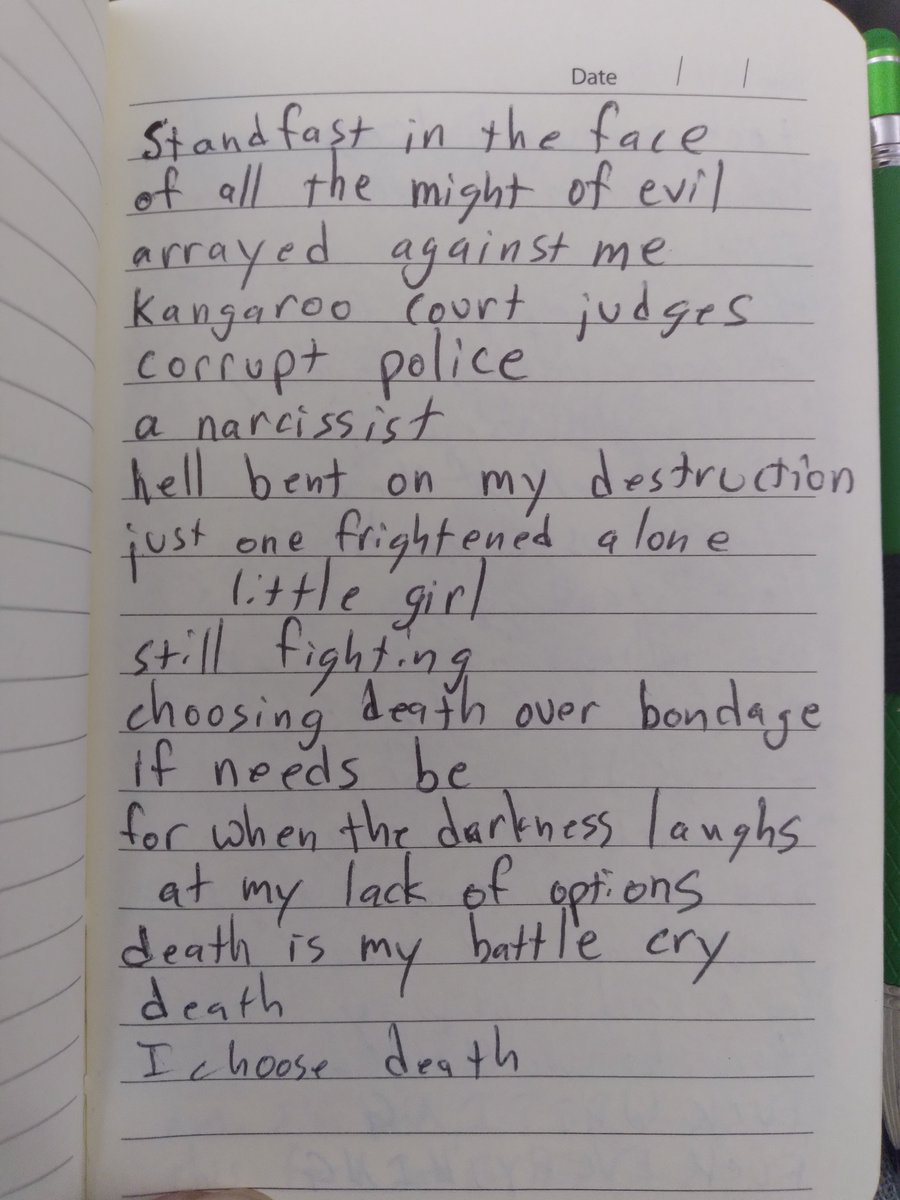 Date / /
Standfast in the face
of all the might of evil
arrayed against me
Kangaroo court judges
corrupt police
a narcissist
hell bent on my destruction
just one frightened alone
little girl
still fighting
choosing death over bondage
if needs be
for when the darkness laughs
at my lack of options
death is my battle cry
death
I choose death